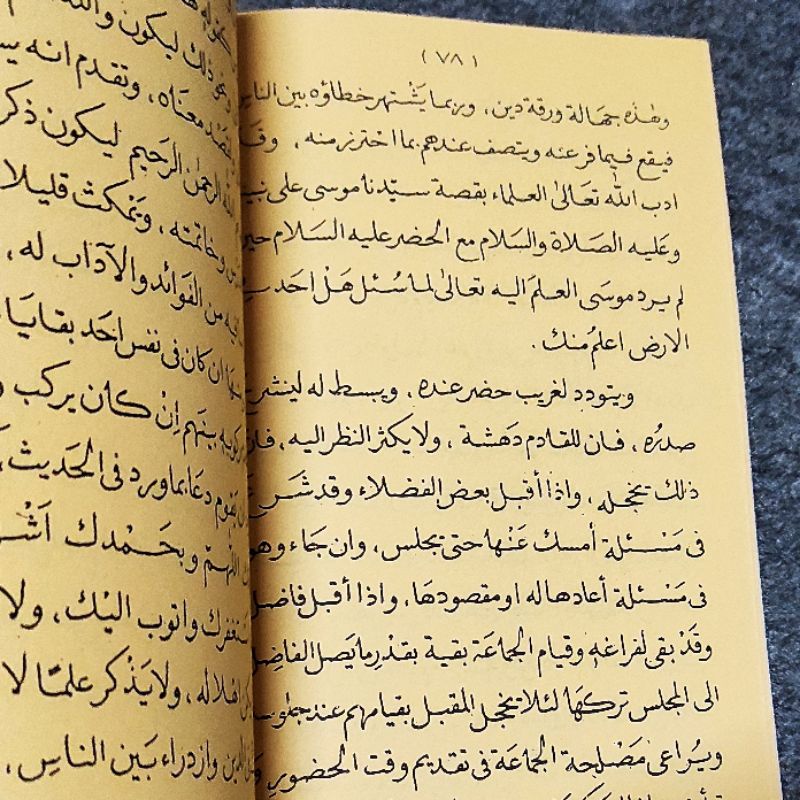 (٧٨)
وهذه جهالة ورقة دين، وربما يشتهر خطاؤه بين الناس
فيقع فيما فر عنه ويتصف عندهم بما احترز منه، وقد
ادب الله تعالى العلماء بقصة سيدنا موسى على نبينا
وعليه الصلاة والسلام مع الخضر عليه السلام حين
لم يرد موسى العلم اليه تعالى لما سئل هل احد
الارض اعلم منك.
ويتودد لغريب حضر عنده، ويبسط له لينشرح
صدره، فان للقادم دهشة، ولا يكثر النظر اليه، فان
ذلك يخجله، واذا أقبل بعض الفضلاء وقد شرع
فى مسئلة أمسك عنها حتى يجلس، وان جاء وهو
فى مسئلة أعادها له او مقصودها، واذا أقبل فاضل
وقد بقى لفراغه وقيام الجماعة بقية بقدر ما يصل الفاضل
الى المجلس تركها لئلا يخجل المقبل بقيامهم عند جلوسه
ويراعى مصلحة الجماعة فى تقديم وقت الحضور
ذلك ليكون
معناه، وتقدم انه
الرحمن الرحيم ليكون ذكر
وخاتمته، ويمكث قليلا
من الفوائد والآداب له،
ان كان فى نفس احد بقايا
بينهم إن كان يركب
دعا بما ورد فى الحديث،
اللهم وبحمدك
واتوب اليك، ولا
ولا يذكر علما لا
الدين وازدراء بين الناس،